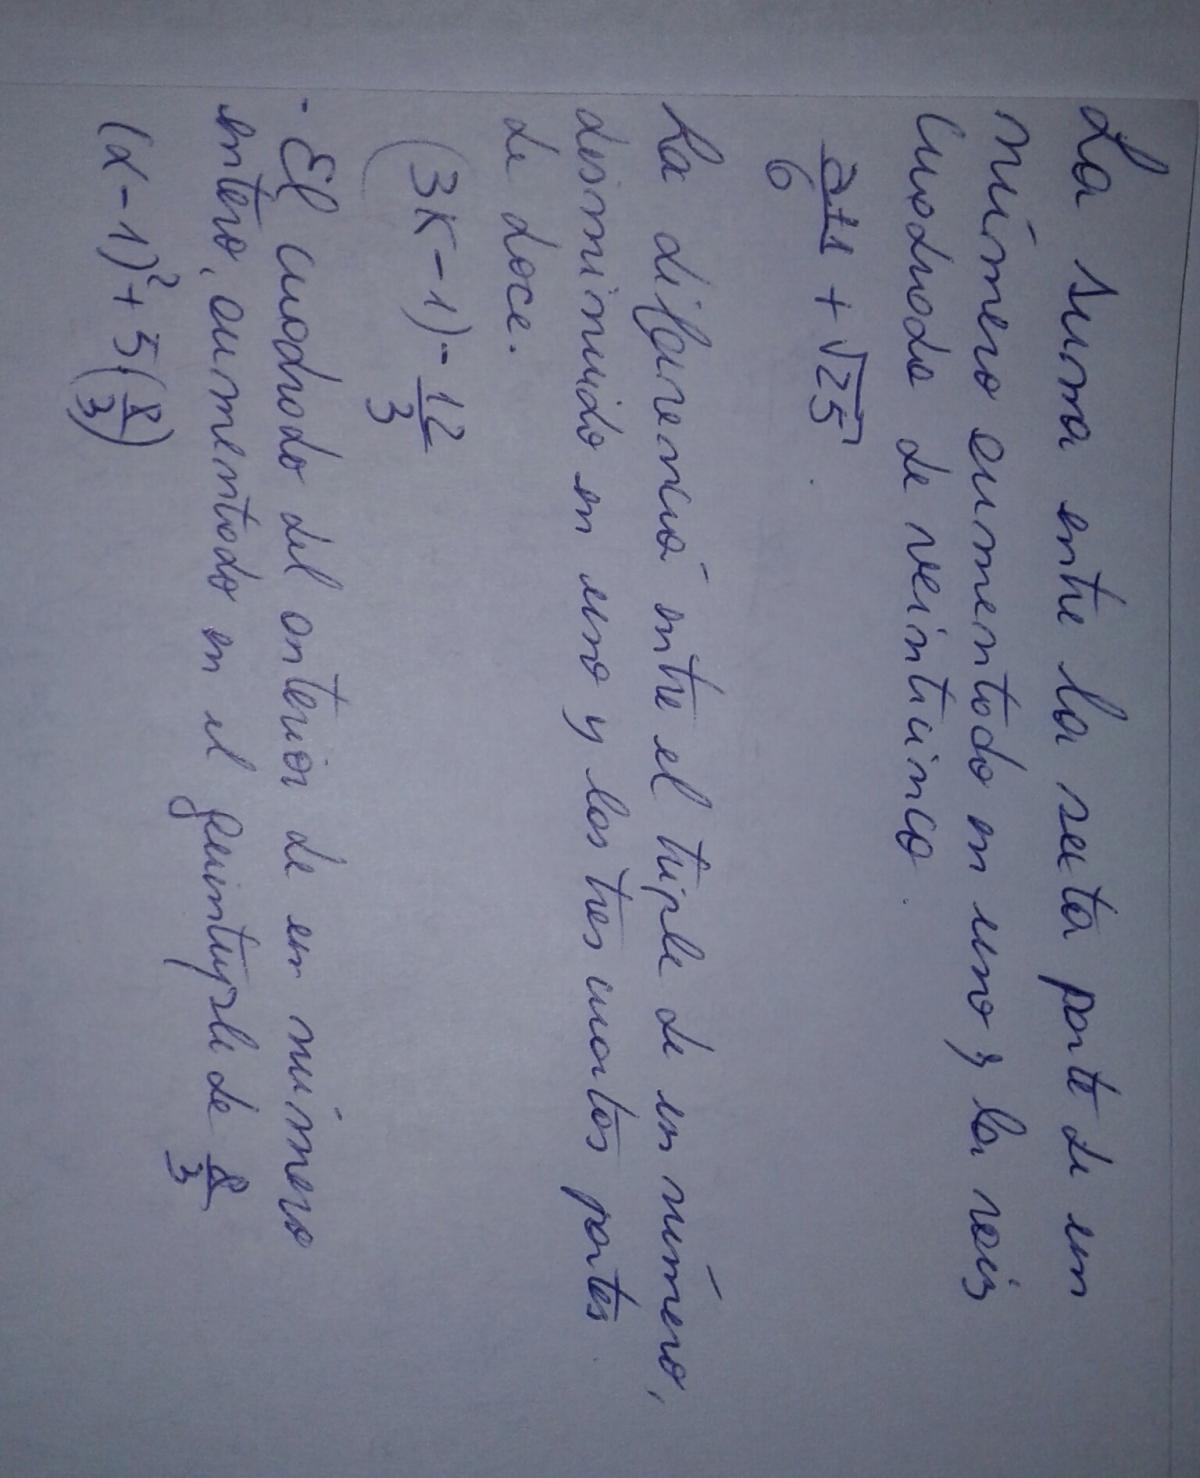 La suma entre la sexta parte de un
número aumentado en uno y la raiz
cuadrada de veinticinco.
a+1/6 + √25
La diferencia entre el triple de un número,
disminuido en uno y los tres cuartas partes
de doce.
(3x-1)-12/3
- El cuadrado del anterior de un número
entero, aumentado en el quintuple de 8/3
(x-1)²+5·(8/3)